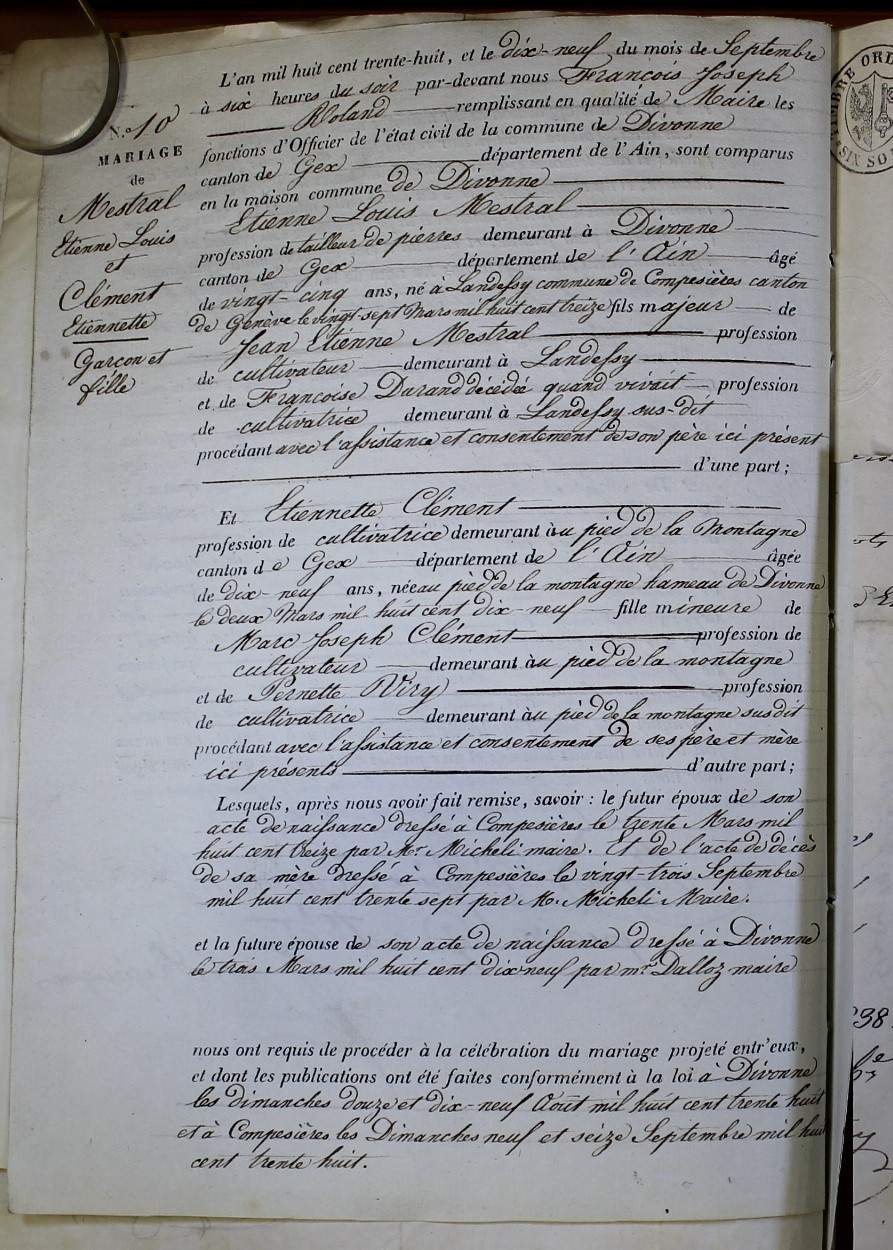 L'an mil huit cent trente-huit, et le dix-neuf du mois de Septembre
à six heures du soir par-devant nous François Joseph
Roland remplissant en qualité de Maire les
fonctions d'Officier de l'état civil de la commune de Divonne
canton de Gex département de l'Ain, sont comparus
en la maison commune de Divonne
Etienne Louis Mestral
profession de tailleur de pierres demeurant à Divonne
canton de Gex département de l'Ain âgé
de vingt-cinq ans, né à Landessy commune de Compesières canton
de Genève le vingt sept Mars mil huit cent treize fils majeur de
Jean Etienne Mestral profession
de cultivateur demeurant à Landessy
et de Françoise Durand décédée quand vivait profession
de cultivatrice demeurant à Landessy sus-dit
procédant avec l'assistance et consentement de son père ici présent
d'une part ;
N.º 10
MARIAGE
de
Mestral
Etienne Louis
et
Clément
Etiennette
Garçon et
fille
Et Etiennette Clément
profession de cultivatrice demeurant au pied de la Montagne
canton de Gex département de l'Ain âgée
de dix-neuf ans, née au pied de la montagne hameau de Divonne
le deux Mars mil huit cent dix-neuf fille mineure de
Marc Joseph Clément profession de
cultivateur demeurant au pied de la montagne
et de Pernette Viry profession
de cultivatrice demeurant au pied de la montagne susdit
procédant avec l'assistance et consentement de ses père et mère
ici présents d'autre part ;
Lesquels, après nous avoir fait remise, savoir : le futur époux de son
acte de naissance dressé à Compesières le trente Mars mil
huit cent treize par Mr Micheli maire. Et de l'acte de décès
de sa mère dressé à Compesières le vingt-trois Septembre
mil huit cent trente sept par M. Micheli Maire.
et la future épouse de son acte de naissance dressé à Divonne
le trois Mars mil huit cent dix neuf par mr Dalloz maire
nous ont requis de procéder à la célébration du mariage projeté entr'eux,
et dont les publications ont été faites conformément à la loi à Divonne
les dimanches douze et dix-neuf Août mil huit cent trente huit
et à Compesières les Dimanches neuf et seize Septembre mil huit
cent trente huit.
SIX SO
38